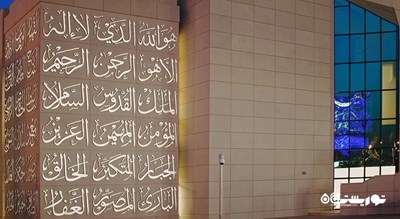 هو الله الذي لا إله
إلا هو الرحمن الرحيم
الملك القدوس السلام
المؤمن المهيمن العزيز
الجبار المتكبر الخالق
البارئ المصور الغفار
توریستگاه